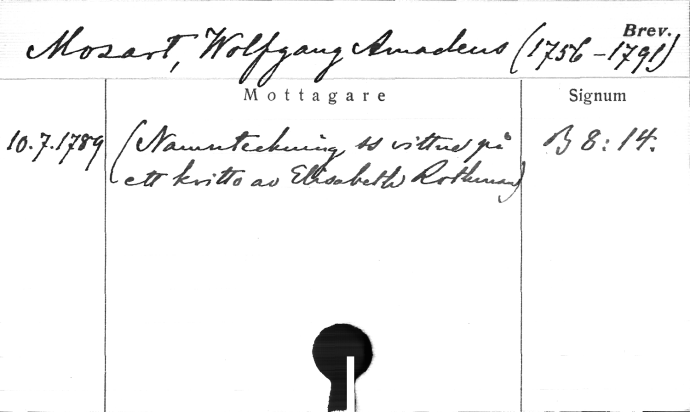 Brev.
Mozart, Wolfgang Amadeus (1756-1791)
Mottagare Signum
10.7.1789 (Namnteckning ss vittne på B 8:14.
ett kvitto av Elisabeth Rothman)